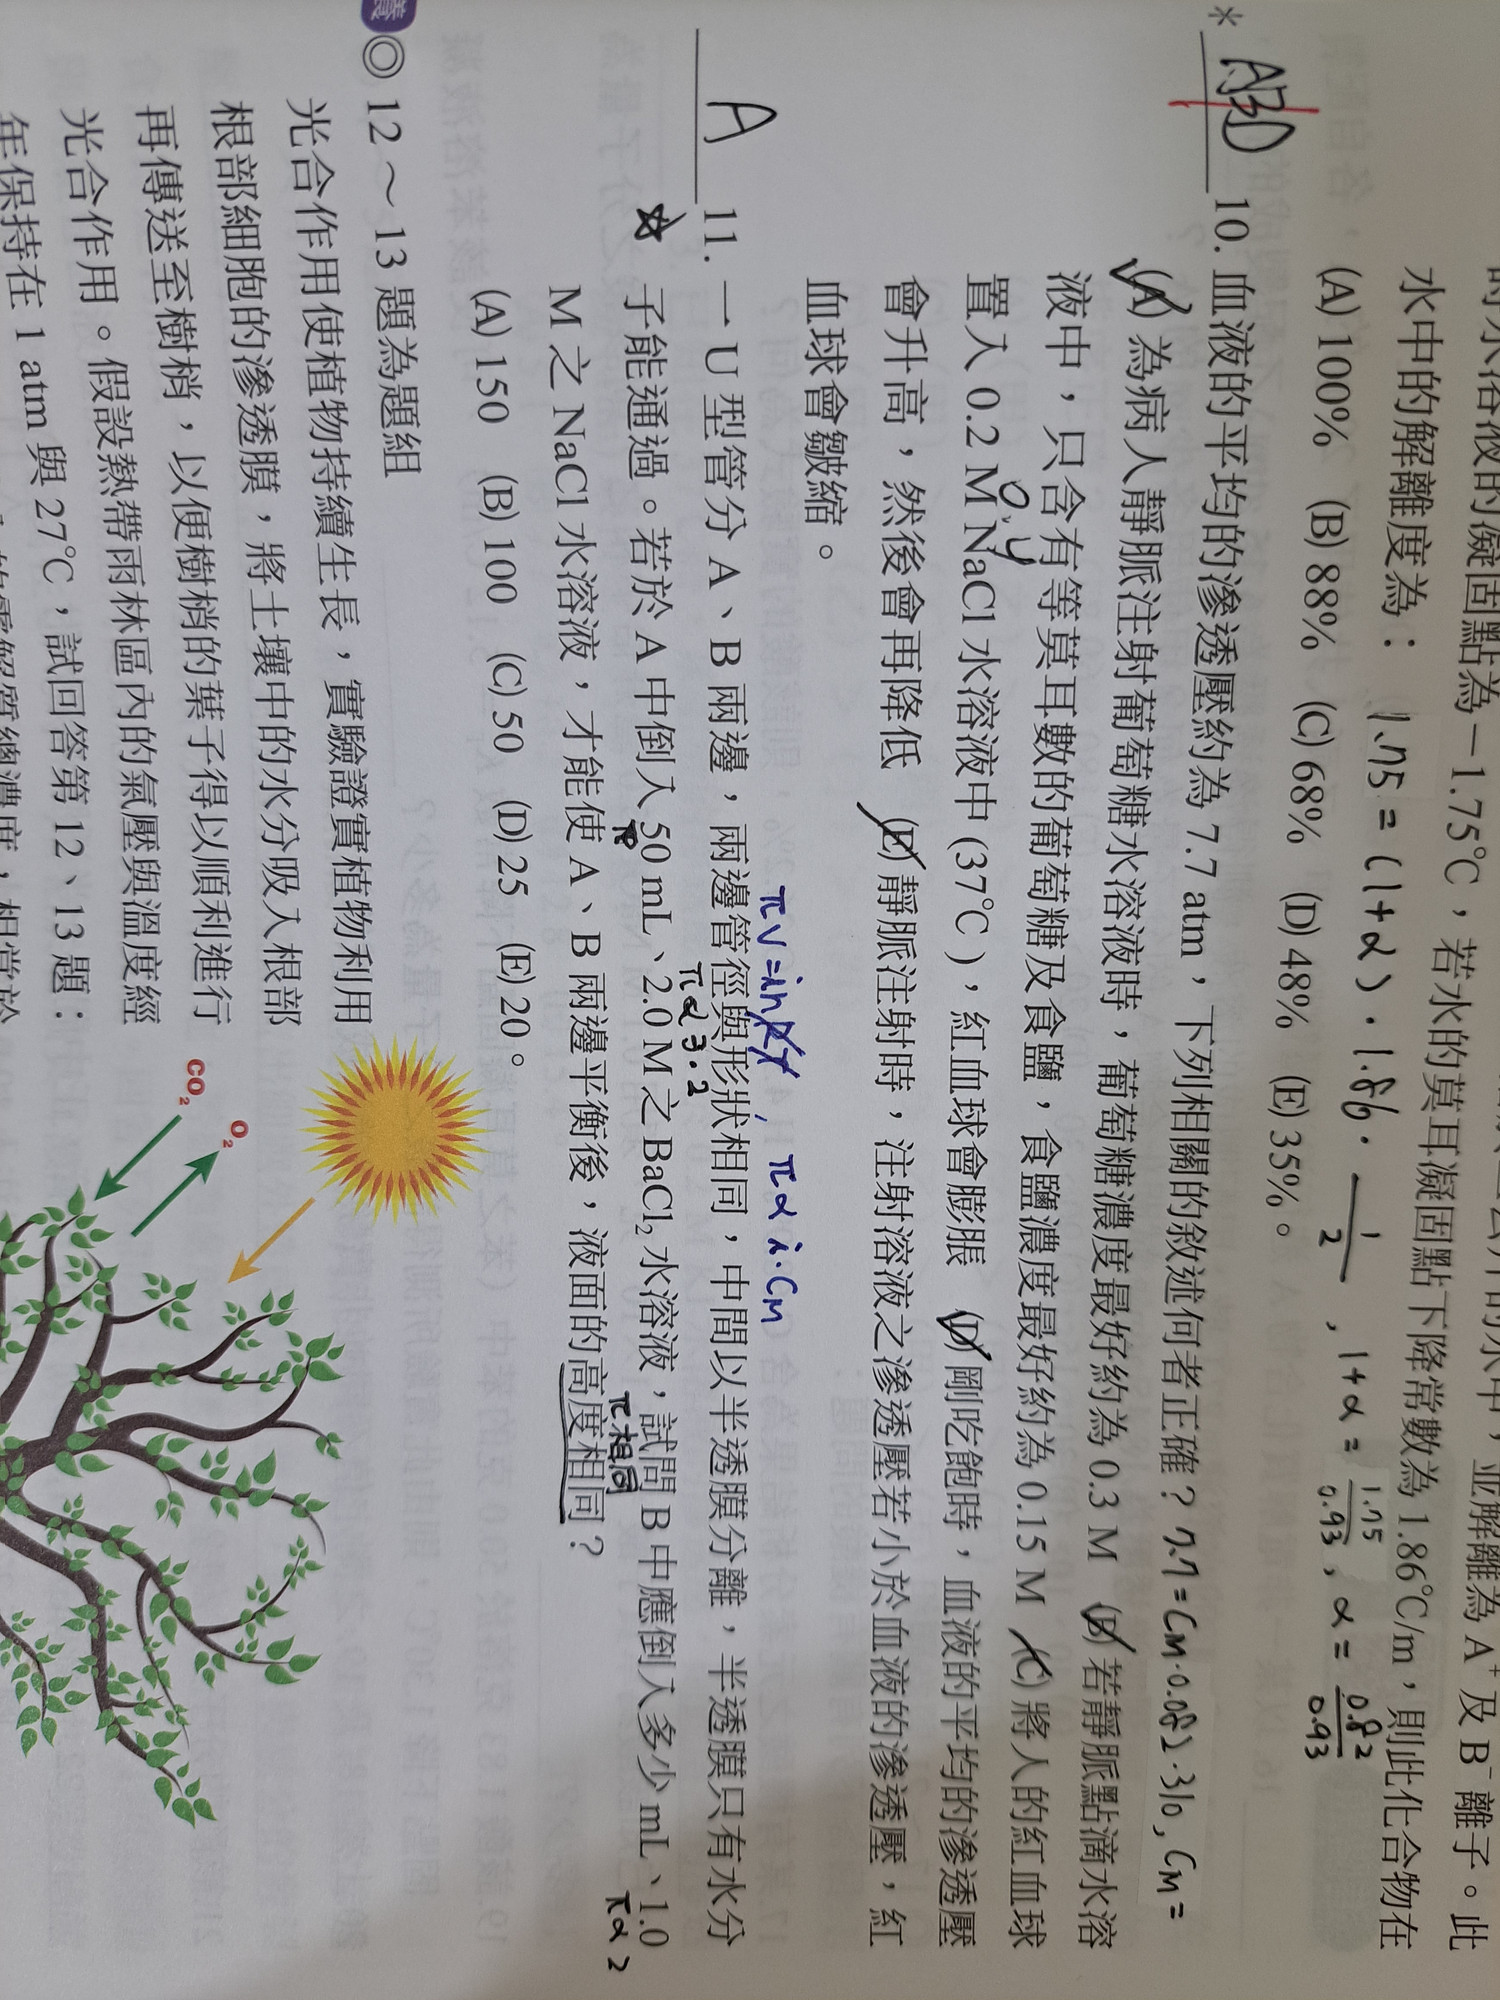 時水溶液的凝固點為－1.75℃，若水的莫耳凝固點下降常數為 1.86℃/m，則此化合物在
水中的解離度為：
1.75 = (1+α)．1.86．1/2 , 1+α = 1.75/0.93 , α = 0.82/0.93
(A) 100% (B) 88% (C) 68% (D) 48% (E) 35%。
* ABD 10. 血液的平均的滲透壓約為 7.7 atm，下列相關的敘述何者正確？ 7.7 = CM．0.082．310, CM =
(A) 為病人靜脈注射葡萄糖水溶液時，葡萄糖濃度最好約為 0.3 M (B) 若靜脈點滴水溶
液中，只含有等莫耳數的葡萄糖及食鹽，食鹽濃度最好約為 0.15 M (C) 將人的紅血球
置入 0.2 M NaCl 水溶液中 (37℃)，紅血球會膨脹 (D) 剛吃飽時，血液的平均的滲透壓
0.4
會升高，然後會再降低 (E) 靜脈注射時，注射溶液之滲透壓若小於血液的滲透壓，紅
血球會皺縮。
πV = inRT , π α i．CM
A 11. 一 U 型管分 A、B 兩邊，兩邊管徑與形狀相同，中間以半透膜分離，半透膜只有水分
π α 3．2
☆ 子能通過。若於 A 中倒入 50 mL、2.0 M 之 BaCl₂ 水溶液，試問 B 中應倒入多少 mL、1.0
π相同
π α 2
M 之 NaCl 水溶液，才能使 A、B 兩邊平衡後，液面的高度相同？
(A) 150 (B) 100 (C) 50 (D) 25 (E) 20。
◎ 12～13 題為題組
光合作用使植物持續生長，實驗證實植物利用
根部細胞的滲透膜，將土壤中的水分吸入根部
再傳送至樹梢，以便樹梢的葉子得以順利進行
光合作用。假設熱帶雨林區內的氣壓與溫度經
年保持在 1 atm 與 27℃，試回答第 12、13 題：
CO₂
O₂